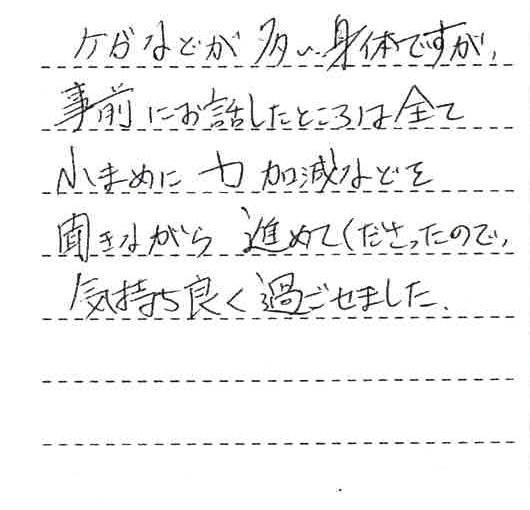 ケガなどが多い身体ですが、
事前にお話したところは全て
小まめに力加減などを
聞きながら進めてくださったので、
気持ち良く過ごせました.